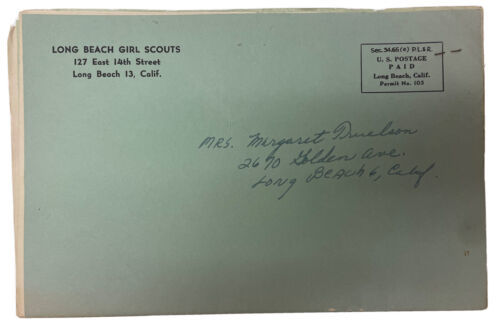 LONG BEACH GIRL SCOUTS
127 East 14th Street
Long Beach 13, Calif.
Sec. 34.66 (e) P.L.&R.
U. S. POSTAGE
PAID
Long Beach, Calif.
Permit No. 103
MRS. Margaret Truelson
2670 Golden Ave.
Long BEACH 6, Calif.